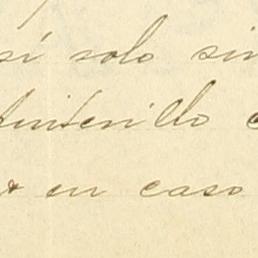 sí solo sin
tinterillo
en caso